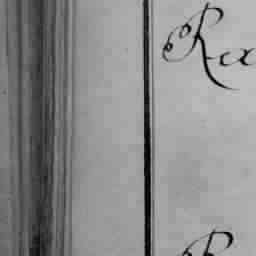 Rex
R